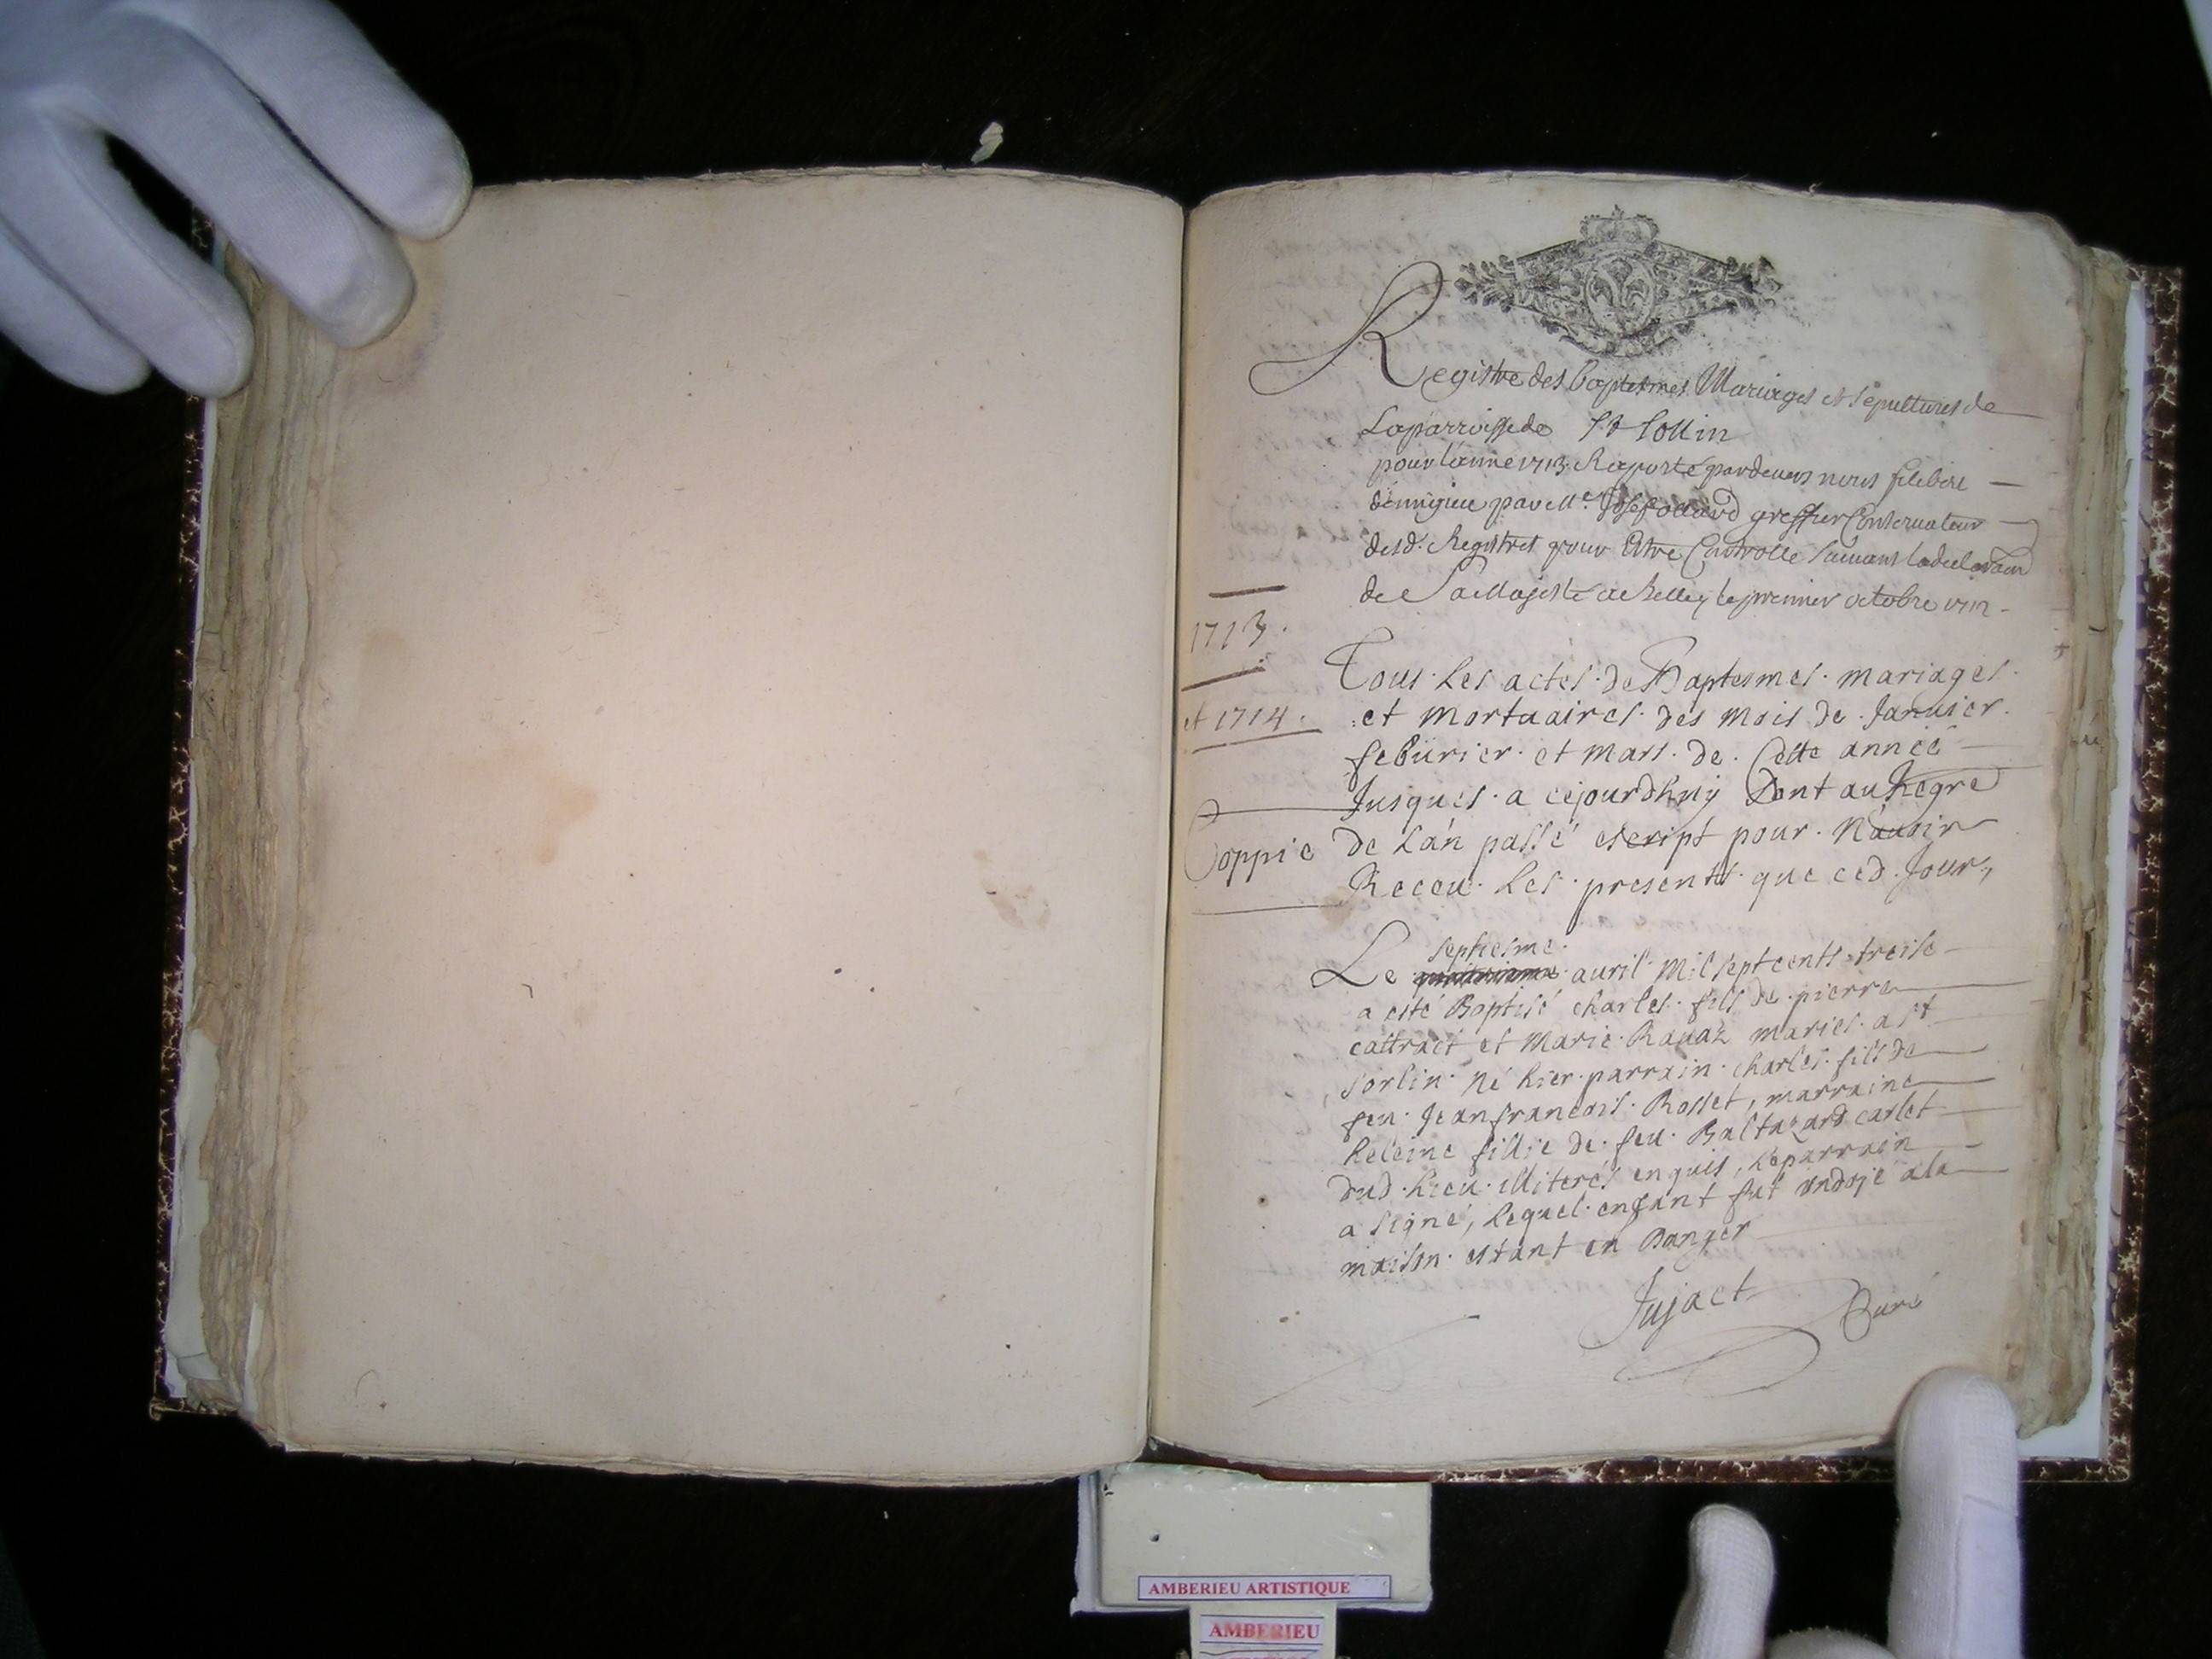 Registre des baptesmes Mariages et sepultures de
Laparroisse de St Sollin
pour l'année 1713. Raporté pardevant nous
par Me. greffier Conservateur
desd. Registres pour Estre Controllé suivant ladeclaraon
de Sa Majesté a Belley le premier octobre 1712
1713.
et 1714.
Coppie
Tous les actes de Baptesmes. mariages.
et mortuaires. des mois de Januier.
feburier. et mars. de. Cette année
Jusques. a cejourdhuy sont au Regre
de L'an passé escript pour. N'auoir
Receu. Les. presents. que ced. Jour,
septiesme.
Le auril mil sept cents treise
a esté Baptisé charles. fils de. pierre
cattract et Marie. Rauaz maries. a st
sorlin. né hier. parrain. charles. fils de
feu. Jean francois. Rosset, marraine
heleine fillie de. feu. Baltazard carlet
dud. Lieu. illiterés enquis, Le parrain
a signé, Lequel. enfant fut ondojé a la
maison. estant en Danger
Jujact Curé
AMBERIEU ARTISTIQUE
AMBERIEU